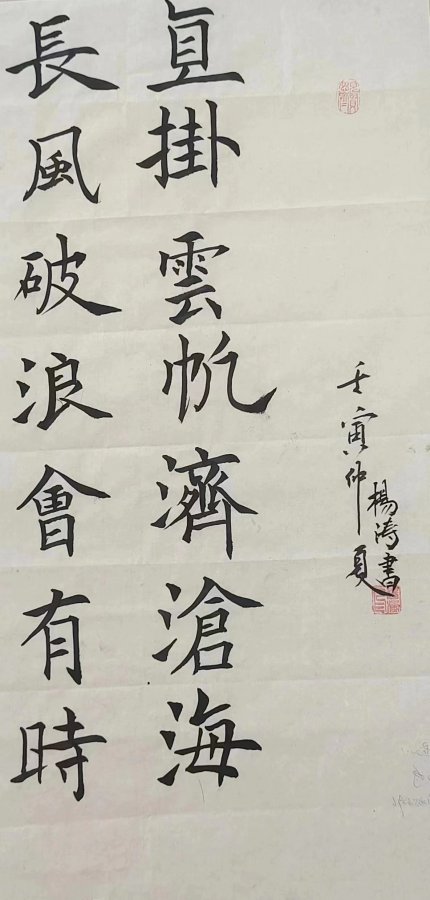 長風破浪會有時
直掛雲帆濟滄海
壬寅仲夏
楊濤書